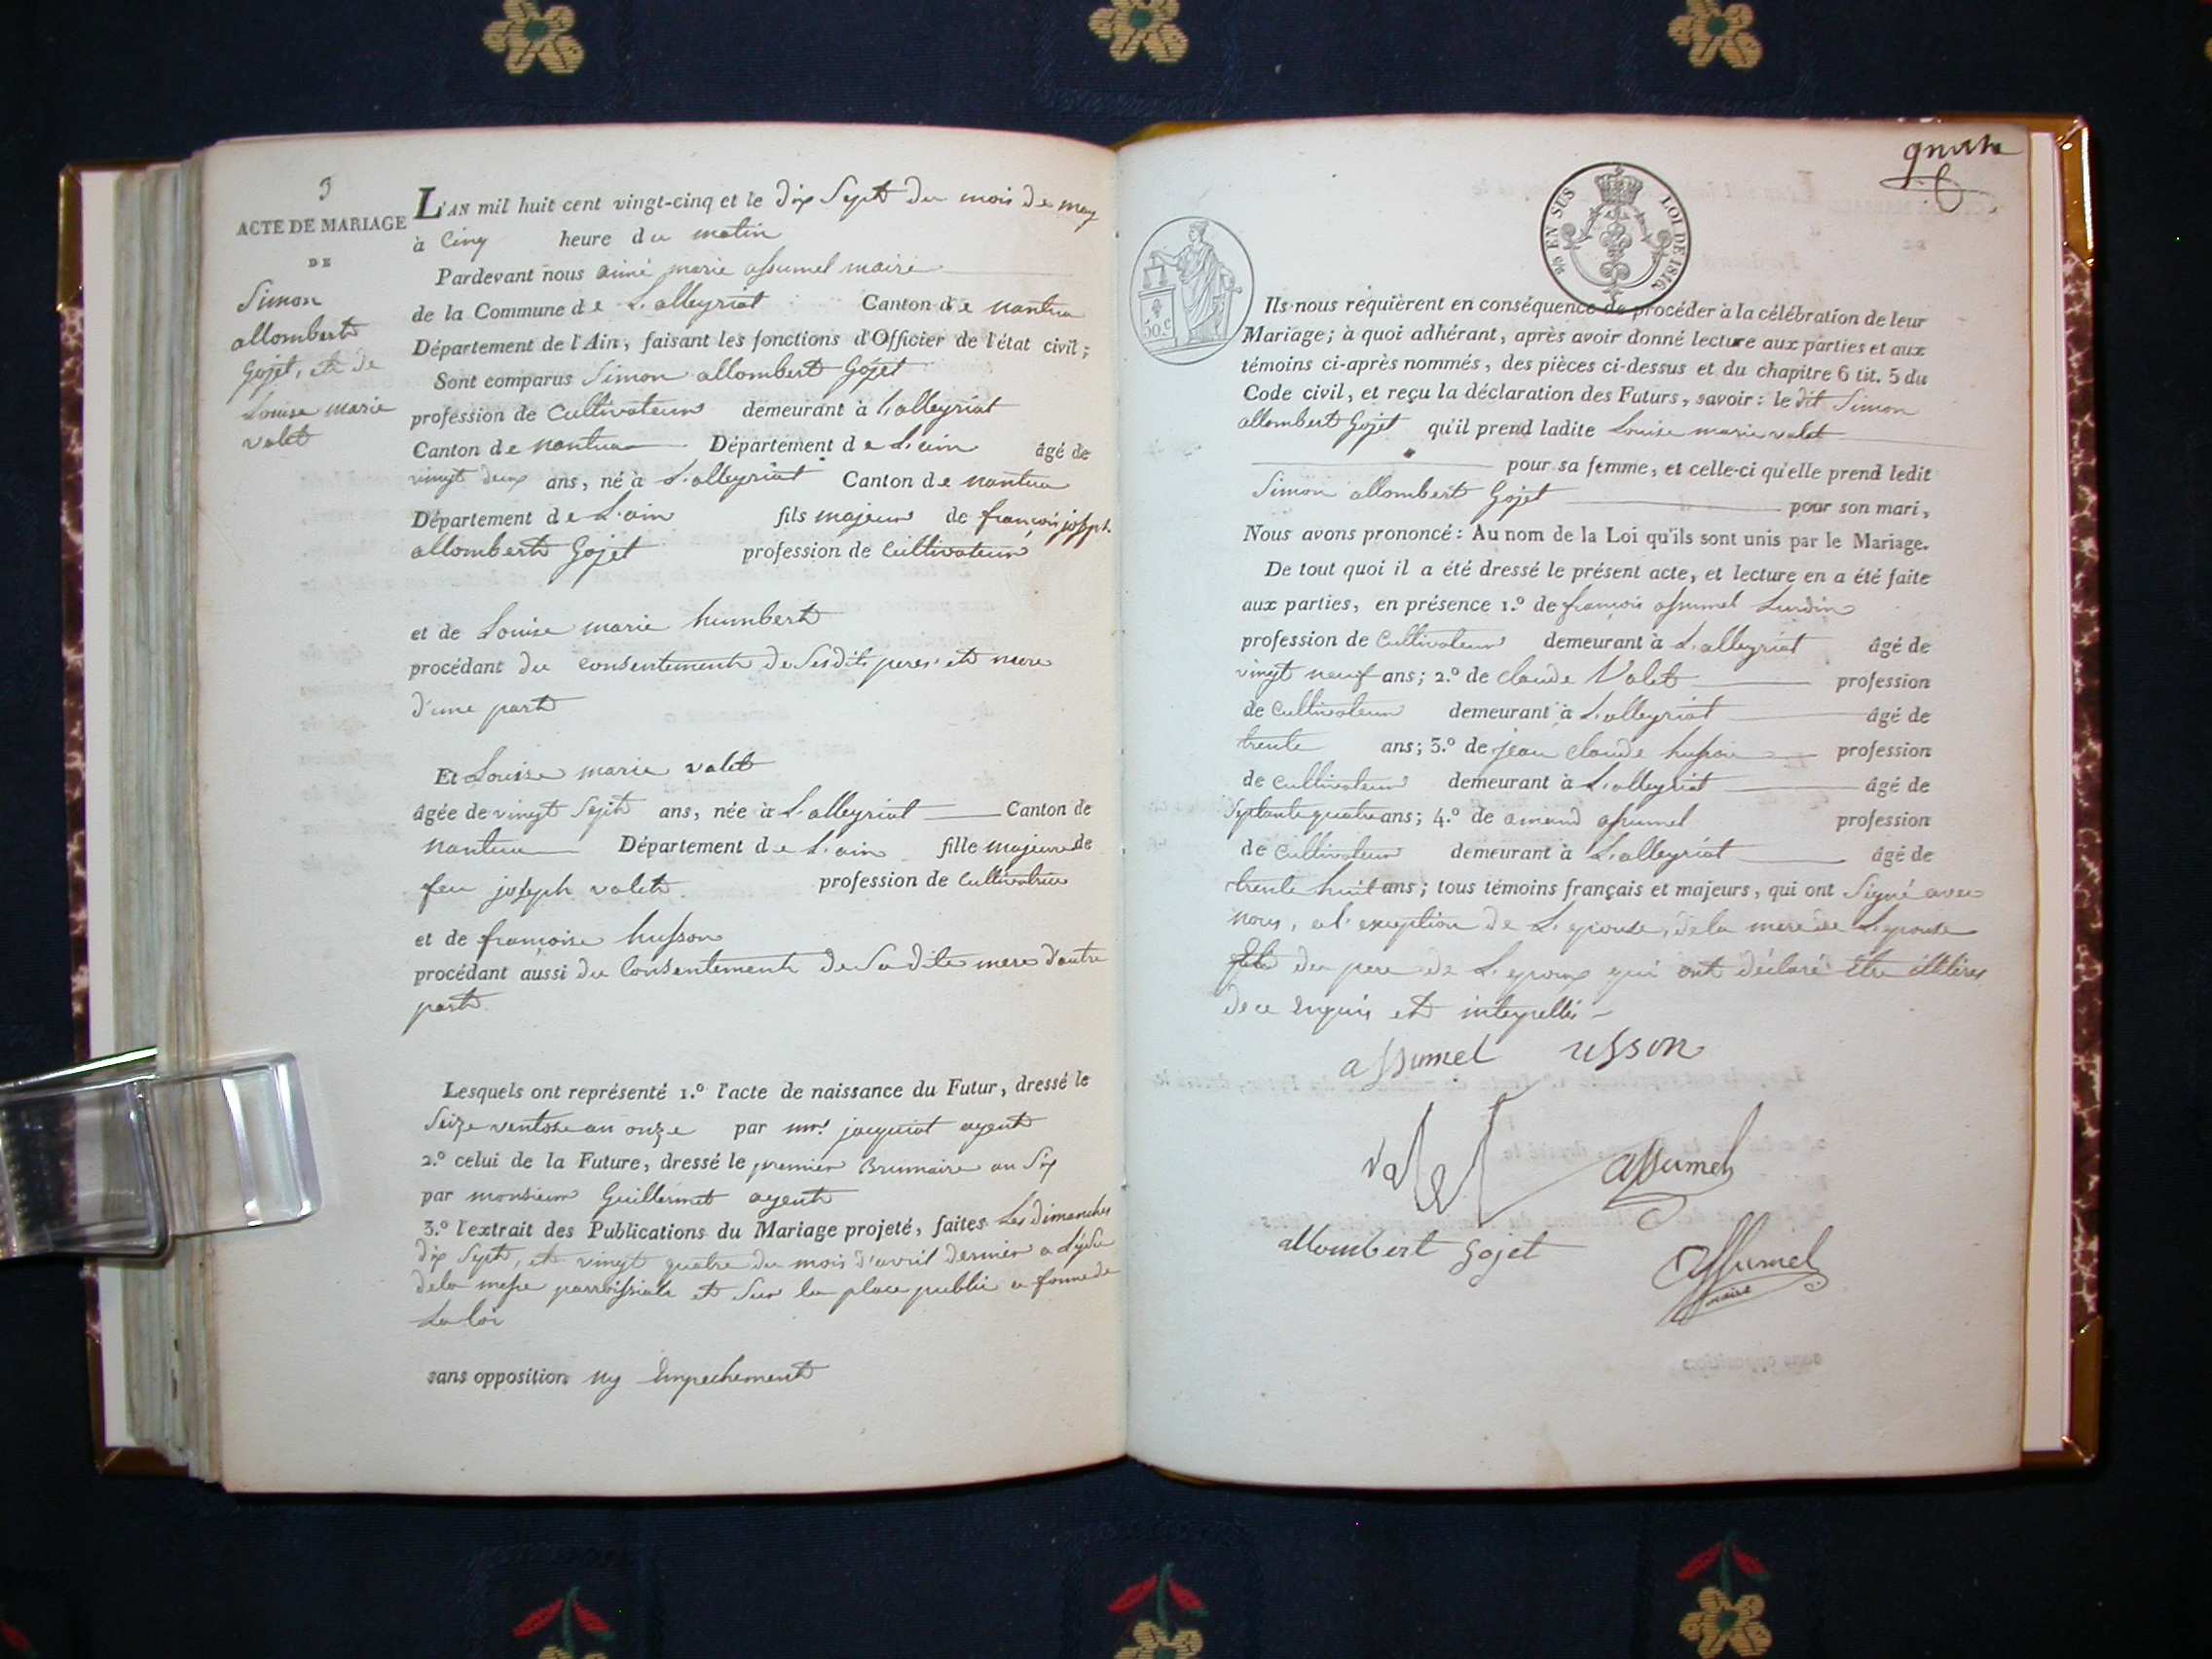 3
ACTE DE MARIAGE
DE
Simon
allombert
Gojet, et de
Louise marie
valet
L'AN mil huit cent vingt-cinq et le dix Sept du mois de may
à Cinq heure du matin
Pardevant nous aimé marie assumel maire
de la Commune de L'alleyriat Canton de nantua
Département de l'Ain, faisant les fonctions d'Officier de l'état civil;
Sont comparus Simon allombert Gojet
profession de Cultivateur demeurant à l'alleyriat
Canton de nantua Département de L'ain âgé de
vingt deux ans, né à L'alleyriat Canton de nantua
Département de L'ain fils majeur de françois joseph
allombert Gojet profession de Cultivateur
et de Louise marie humbert
procédant du consentement de Sesdits peres et mere
d'une part
Et Louise marie valet
âgée de vingt Sept ans, née à L'alleyriat Canton de
nantua Département de L'ain fille majeure de
feu joseph valet profession de Cultivatrice
et de françoise husson
procédant aussi du Consentement de Sa dite mere d'autre
part
Lesquels ont représenté 1.º l'acte de naissance du Futur, dressé le
Seize ventose an onze par mr. jacquiot agent
2.º celui de la Future, dressé le premier Brumaire an Six
par monsieur Guillermet agent
3.º l'extrait des Publications du Mariage projeté, faites Les dimanches
dix Sept, et vingt quatre du mois d'avril dernier a L'issu
de la messe parroissiale et Sur la place public a forme de
La loi
sans opposition ny Empechement
EN SUS LOI DE 1816
50.c
Ils nous requièrent en conséquence de procéder à la célébration de leur
Mariage; à quoi adhérant, après avoir donné lecture aux parties et aux
témoins ci-après nommés, des pièces ci-dessus et du chapitre 6 tit. 5 du
Code civil, et reçu la déclaration des Futurs, savoir: le dit Simon
allombert Gojet qu'il prend ladite Louise marie valet
pour sa femme, et celle-ci qu'elle prend ledit
Simon allombert Gojet pour son mari,
Nous avons prononcé: Au nom de la Loi qu'ils sont unis par le Mariage.
De tout quoi il a été dressé le présent acte, et lecture en a été faite
aux parties, en présence 1.º de françois assumel Lurdin
profession de Cultivateur demeurant à L'alleyriat âgé de
vingt neuf ans; 2.º de claude Valet profession
de Cultivateur demeurant à L'alleyriat âgé de
trente ans; 3.º de jean claude husson profession
de Cultivateur demeurant à L'alleyriat âgé de
Septante quatre ans; 4.º de amand assumel profession
de Cultivateur demeurant à L'alleyriat âgé de
trente huit ans; tous témoins français et majeurs, qui ont Signé avec
nous, a l'exception de L'epouse, de la mere de L'epouse
du pere de L'epoux qui ont déclaré être illiteres
de ce Enquis et interpellés
assumel usson
valet assumel
allombert gojet
assumel
maire